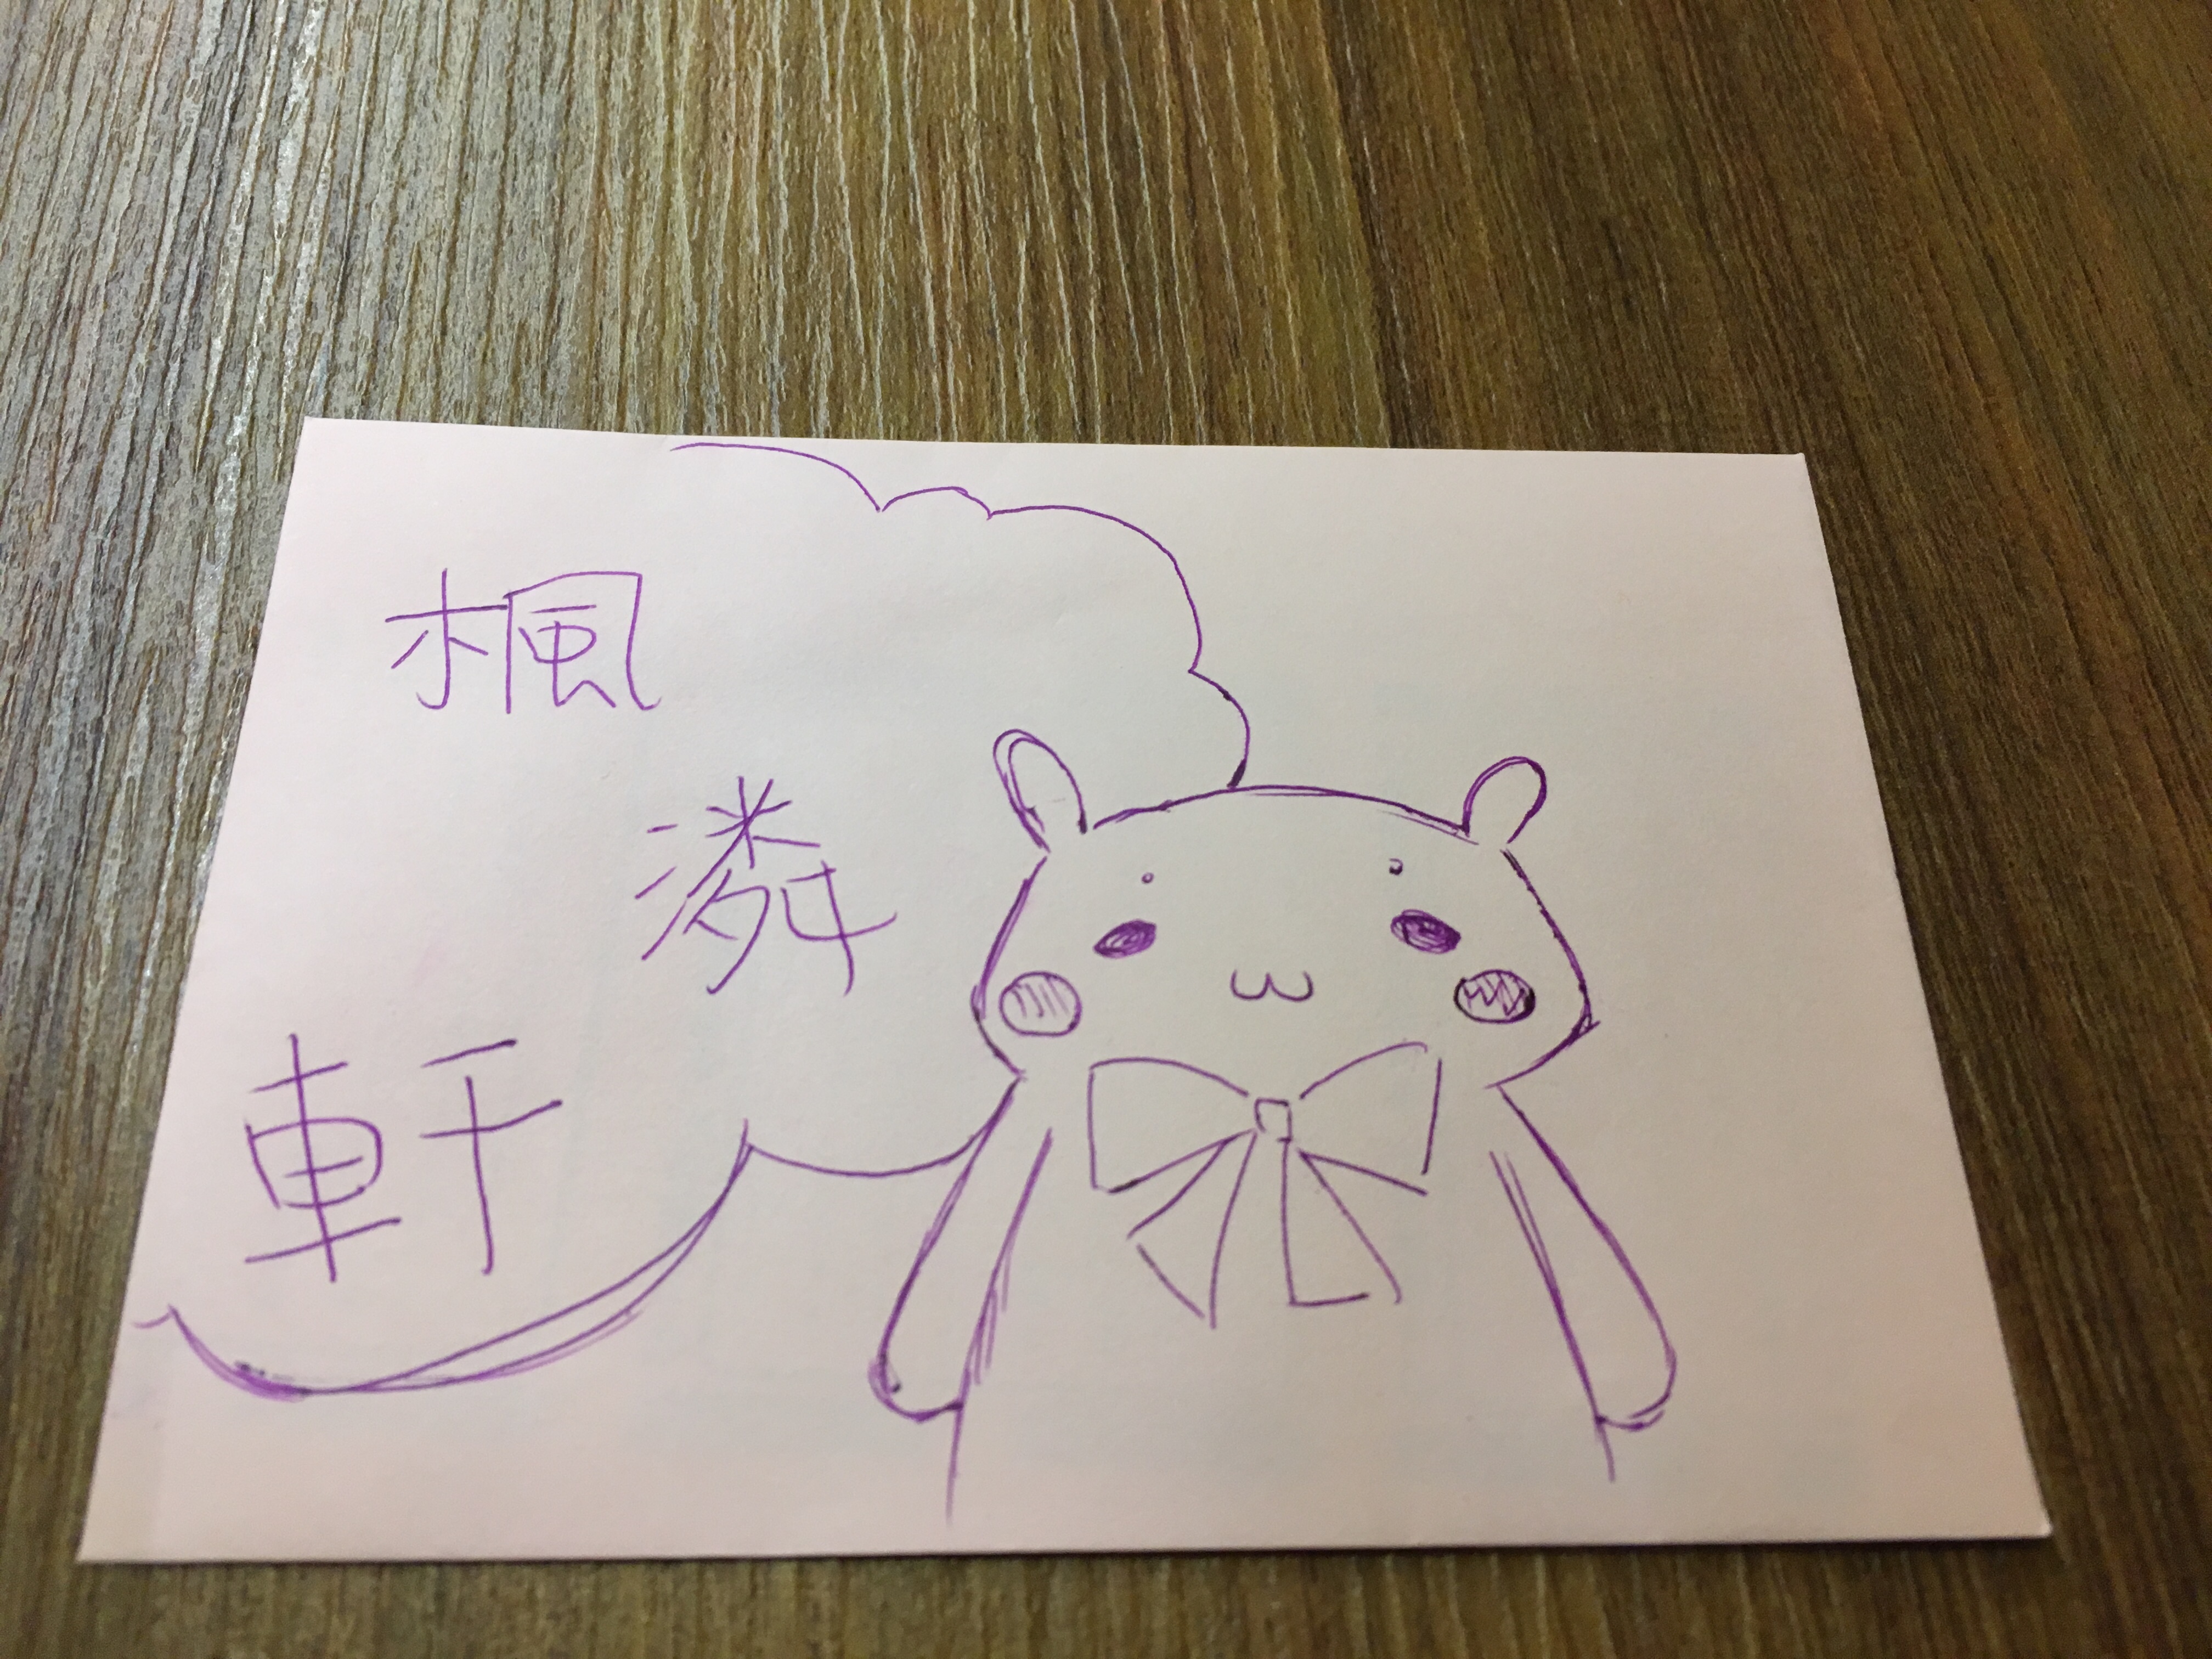 楓
潾
軒